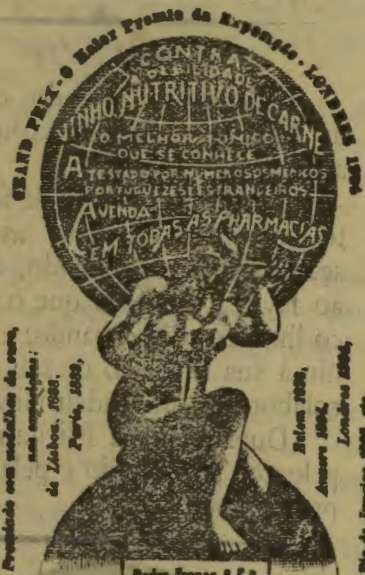 GRAND PRIX - O Maior Premio da Exposição - LONDRES 1904
CONTRA
A DEBILIDADE
VINHO NUTRITIVO DE CARNE
O MELHOR TONICO
QUE SE CONHECE
ATTESTADO POR NUMEROSOS MEDICOS
PORTUGUEZES E ESTRANGEIROS
Á VENDA
EM TODAS AS PHARMACIAS
Premiado com medalhas de ouro,
nas exposições:
de Lisboa, 1888,
Paris, 1889,
Anvers 1894,
Londres 1904,
Rio de Janeiro
Pedro Franco & C.A